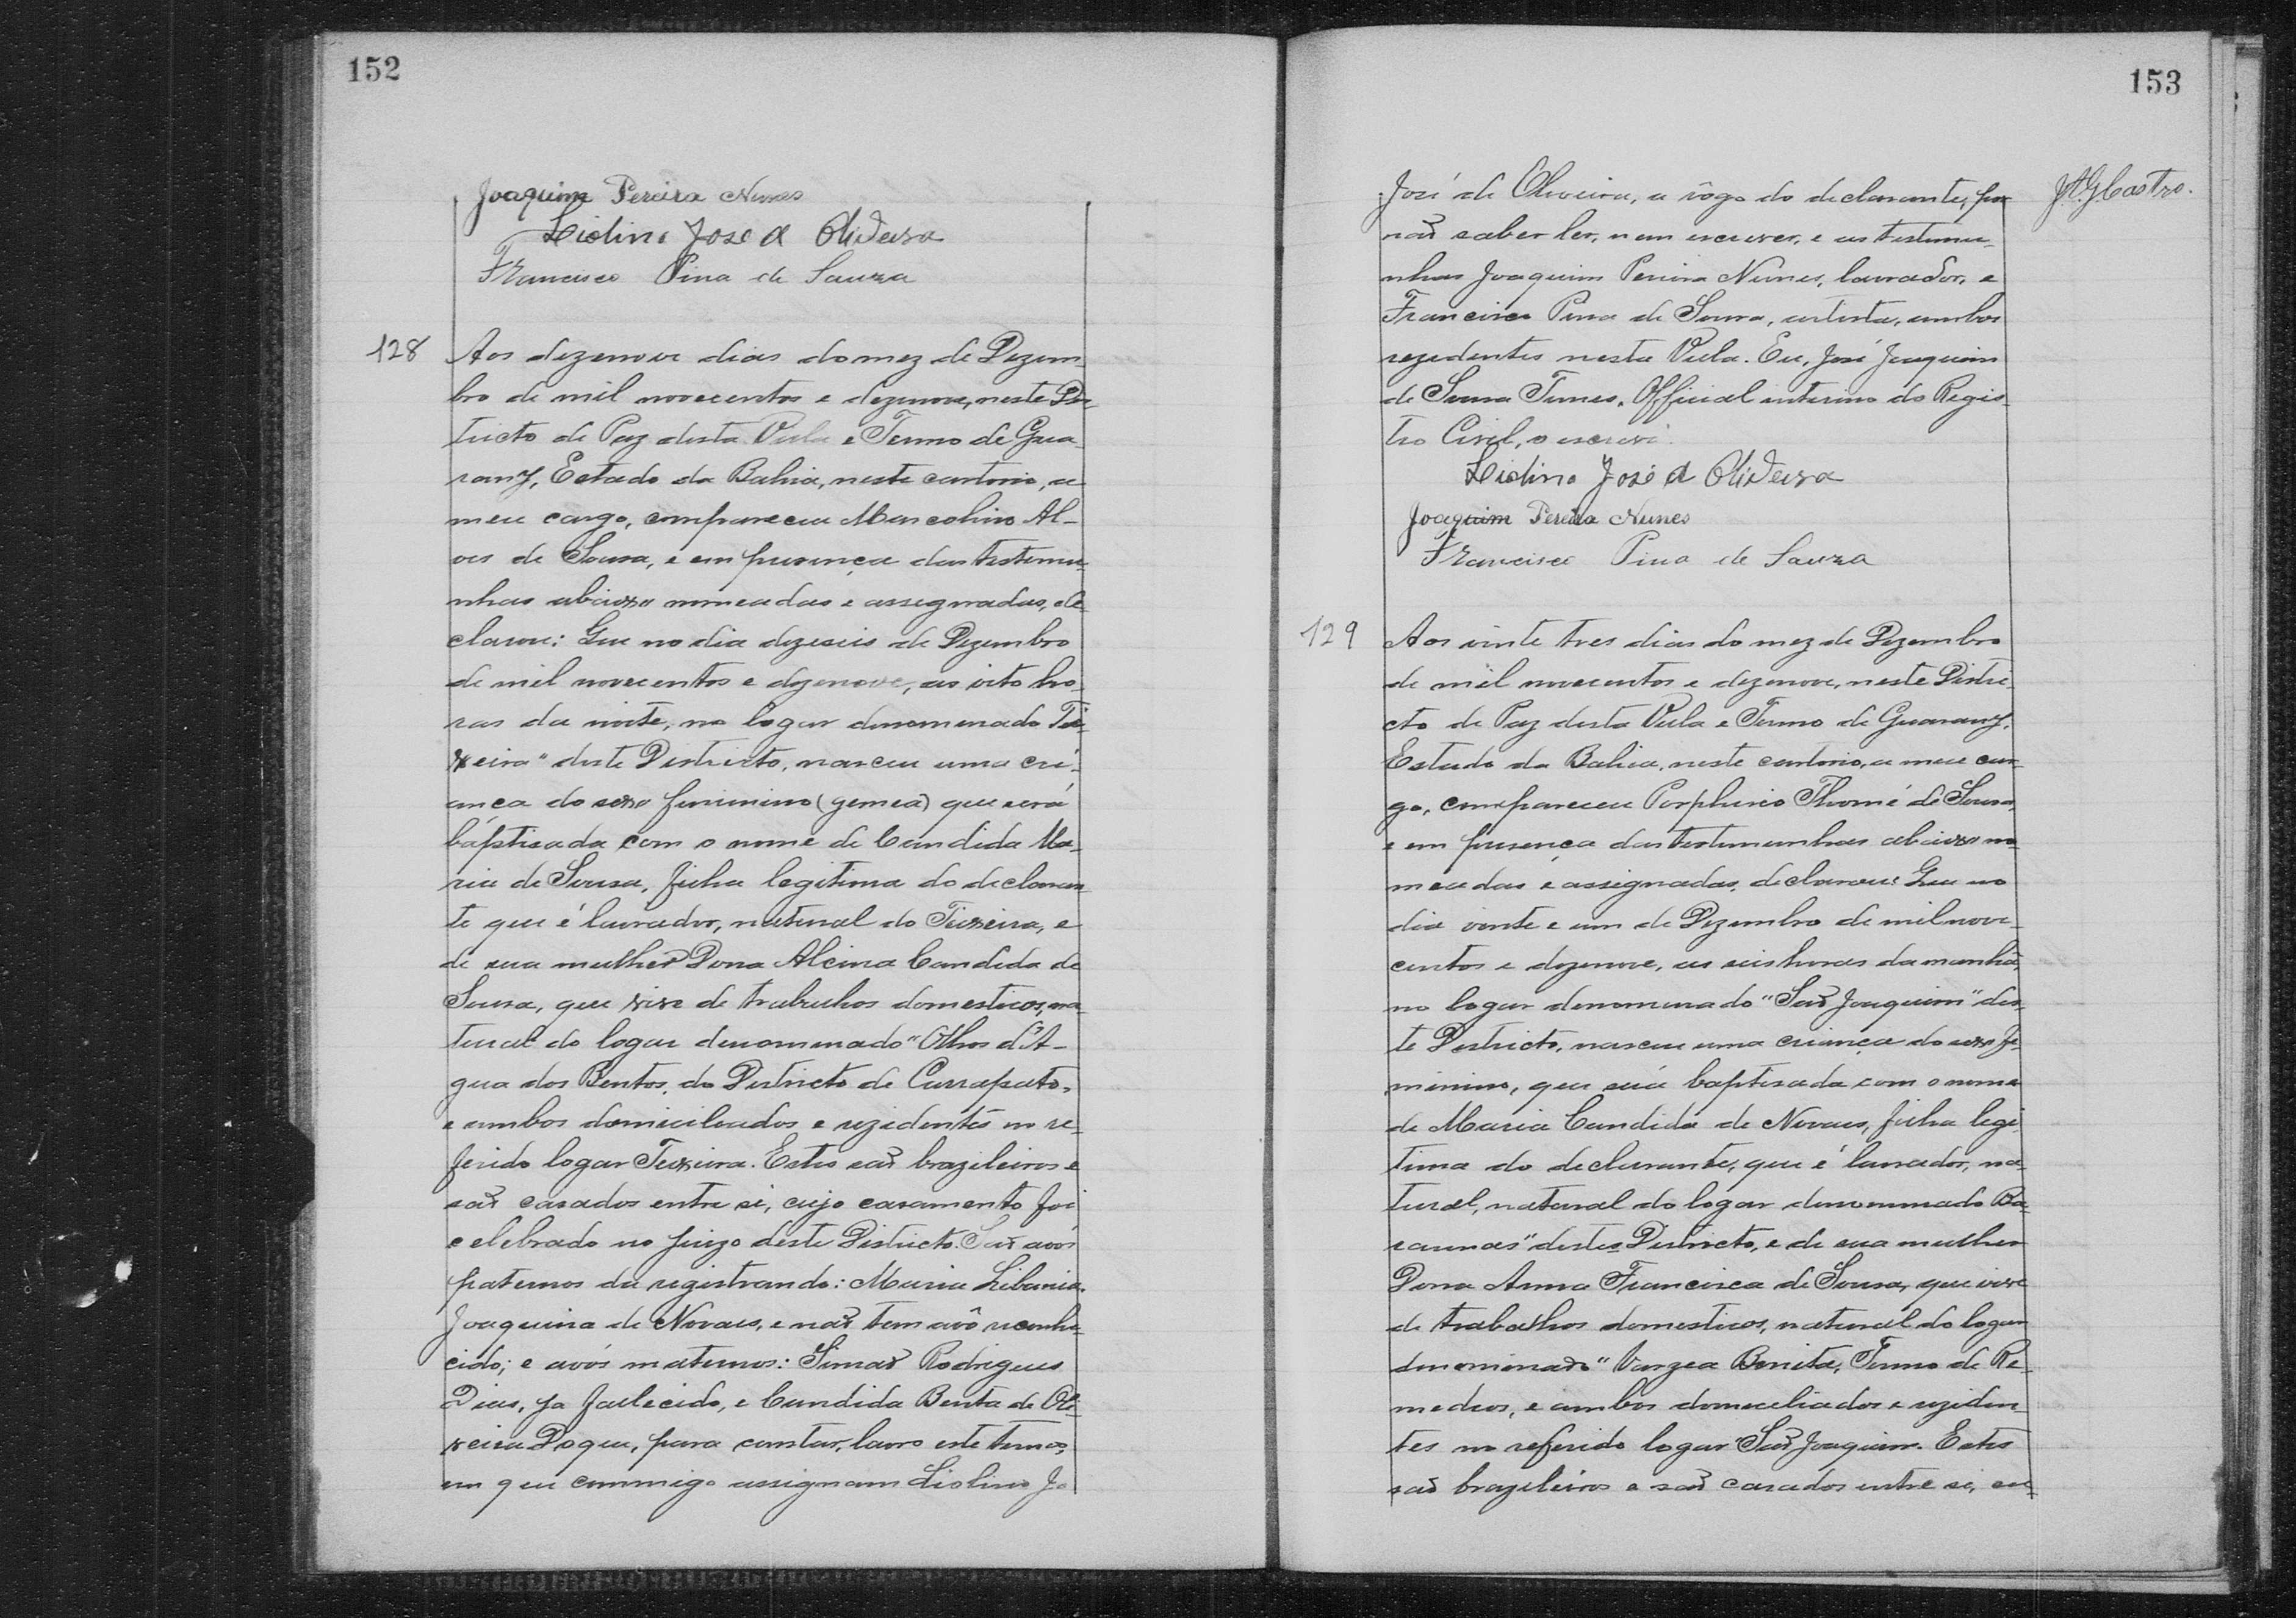 152
Joaquim Pereira Nunes
Liolino José d Oliveira
Francisco Pina de Sauza
128
Aos dezenove dias do mez de Dezem-
bro de mil novecentos e dezenove, neste Dis-
tricto de Paz desta Villa e Termo de Gua-
rany, Estado da Bahia, neste cartorio, a
meu cargo, compareceu Marcolino Al-
ves de Sousa, e em presença das testemu-
nhas abaixo nomeadas e assegnadas, de-
clarou: Que no dia dezeseis de Dezembro
de mil novecentos e dezenove, as oito ho-
ras da noite, no logar denominado Tei-
xeira" deste Districto, nasceu uma cri-
ança do sexo feminino (gemea) que será
baptisada com o nome de Candida Ma-
ria de Sousa, filha legitima do declaran-
te que é lavrador, natural do Teixeira, e
de sua mulher Dona Alcina Candida de
Sousa, que vive de trabalhos domesticos, na-
tural do logar denominado "Olhos d'A-
gua dos Bentos, do Districto de Carrapato,
e ambos domiciliados e rezidentes no re-
ferido logar Teixeira. Estes saõ brazileiros e
saõ casados entre si, cujo casamento foi
celebrado no juizo deste Districto. Saõ avós
paternos da registrando: Maria Libania
Joaquina de Novaes, e naõ tem avô reconhe-
cido; e avós maternos: Simaõ Rodrigues
Dias, ja fallecido, e Candida Benta de Oli-
veira Do que, para constar, lavro este termo,
em que commigo assignam Liolino Jo
153
José de Oliveira, a rôgo do declarante, por
naõ saber ler, nem escrever, e as testemu-
nhas Joaquim Pereira Nunes, lavrador, e
Francisco Pina de Sousa, artista, ambos
rezedentes nesta Villa. Eu, José Joaquim
de Sousa Tunes, Official interino do Regis-
tro Civil, o escrevi.
Liolino José d Oliveira
Joaquim Pereira Nunes
Francisco Pina de Sauza
129
Aos vinte tres dias do mez de Dezembro
de mil novecentos e dezenove, neste Distri-
cto de Paz desta Villa e Termo de Guarany,
Estado da Bahia, neste cartorio, a meu car-
go, compareceu Porphirio Thomé de Sousa,
e em presença das testemunhas abaixo no-
meadas e assignadas, declarou: Que no
dia vinte e um de Dezembro de mil nove-
centos e dezenove, as seis horas da manhã,
no logar denominado "Saõ Joaquim" des-
te Districto, nasceu uma criança do sexo fe-
minino, que será baptisada com o nome
de Maria Candida de Novaes, filha legi-
tima do declarante, que é lavrador, na-
tural, natural do logar denominado Ba-
raunas" destes Districto, e de sua mulher
Dona Anna Francisca de Sousa, que vive
de trabalhos domesticos, natural do logar
denominado "Varzea Bonita, Termo de Re-
medios, e ambos domeciliados e reziden-
tes no referido logar "Saõ Joaquim. Estes
saõ brazileiros e saõ casados entre si, cu-